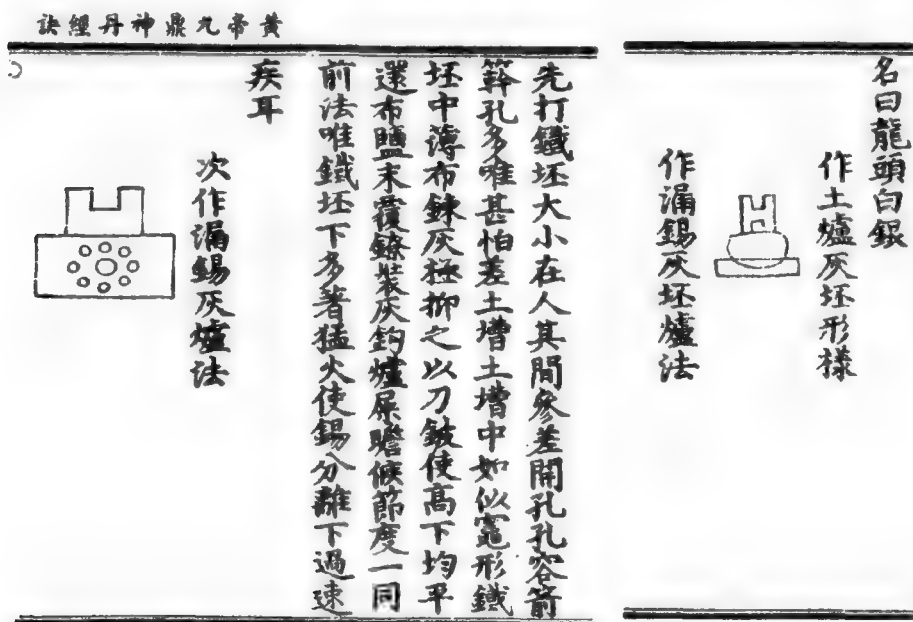 黃帝九鼎神丹經訣
名曰龍頭白銀
作土爐灰坯形樣
作漏錫灰坯爐法
先打鐵坯大小在人其間參差開孔孔容箭
簳孔多唯甚怕差土墫土墫中如似竈形鐵
坯中薄布鍊灰極抑之以刀鈹使高下均平
還布鹽末覆鐐裝灰鈎爐屎瞻候節度一同
前法唯鐵坯下多著猛火使錫分離下過速
疾耳
次作漏錫灰爐法